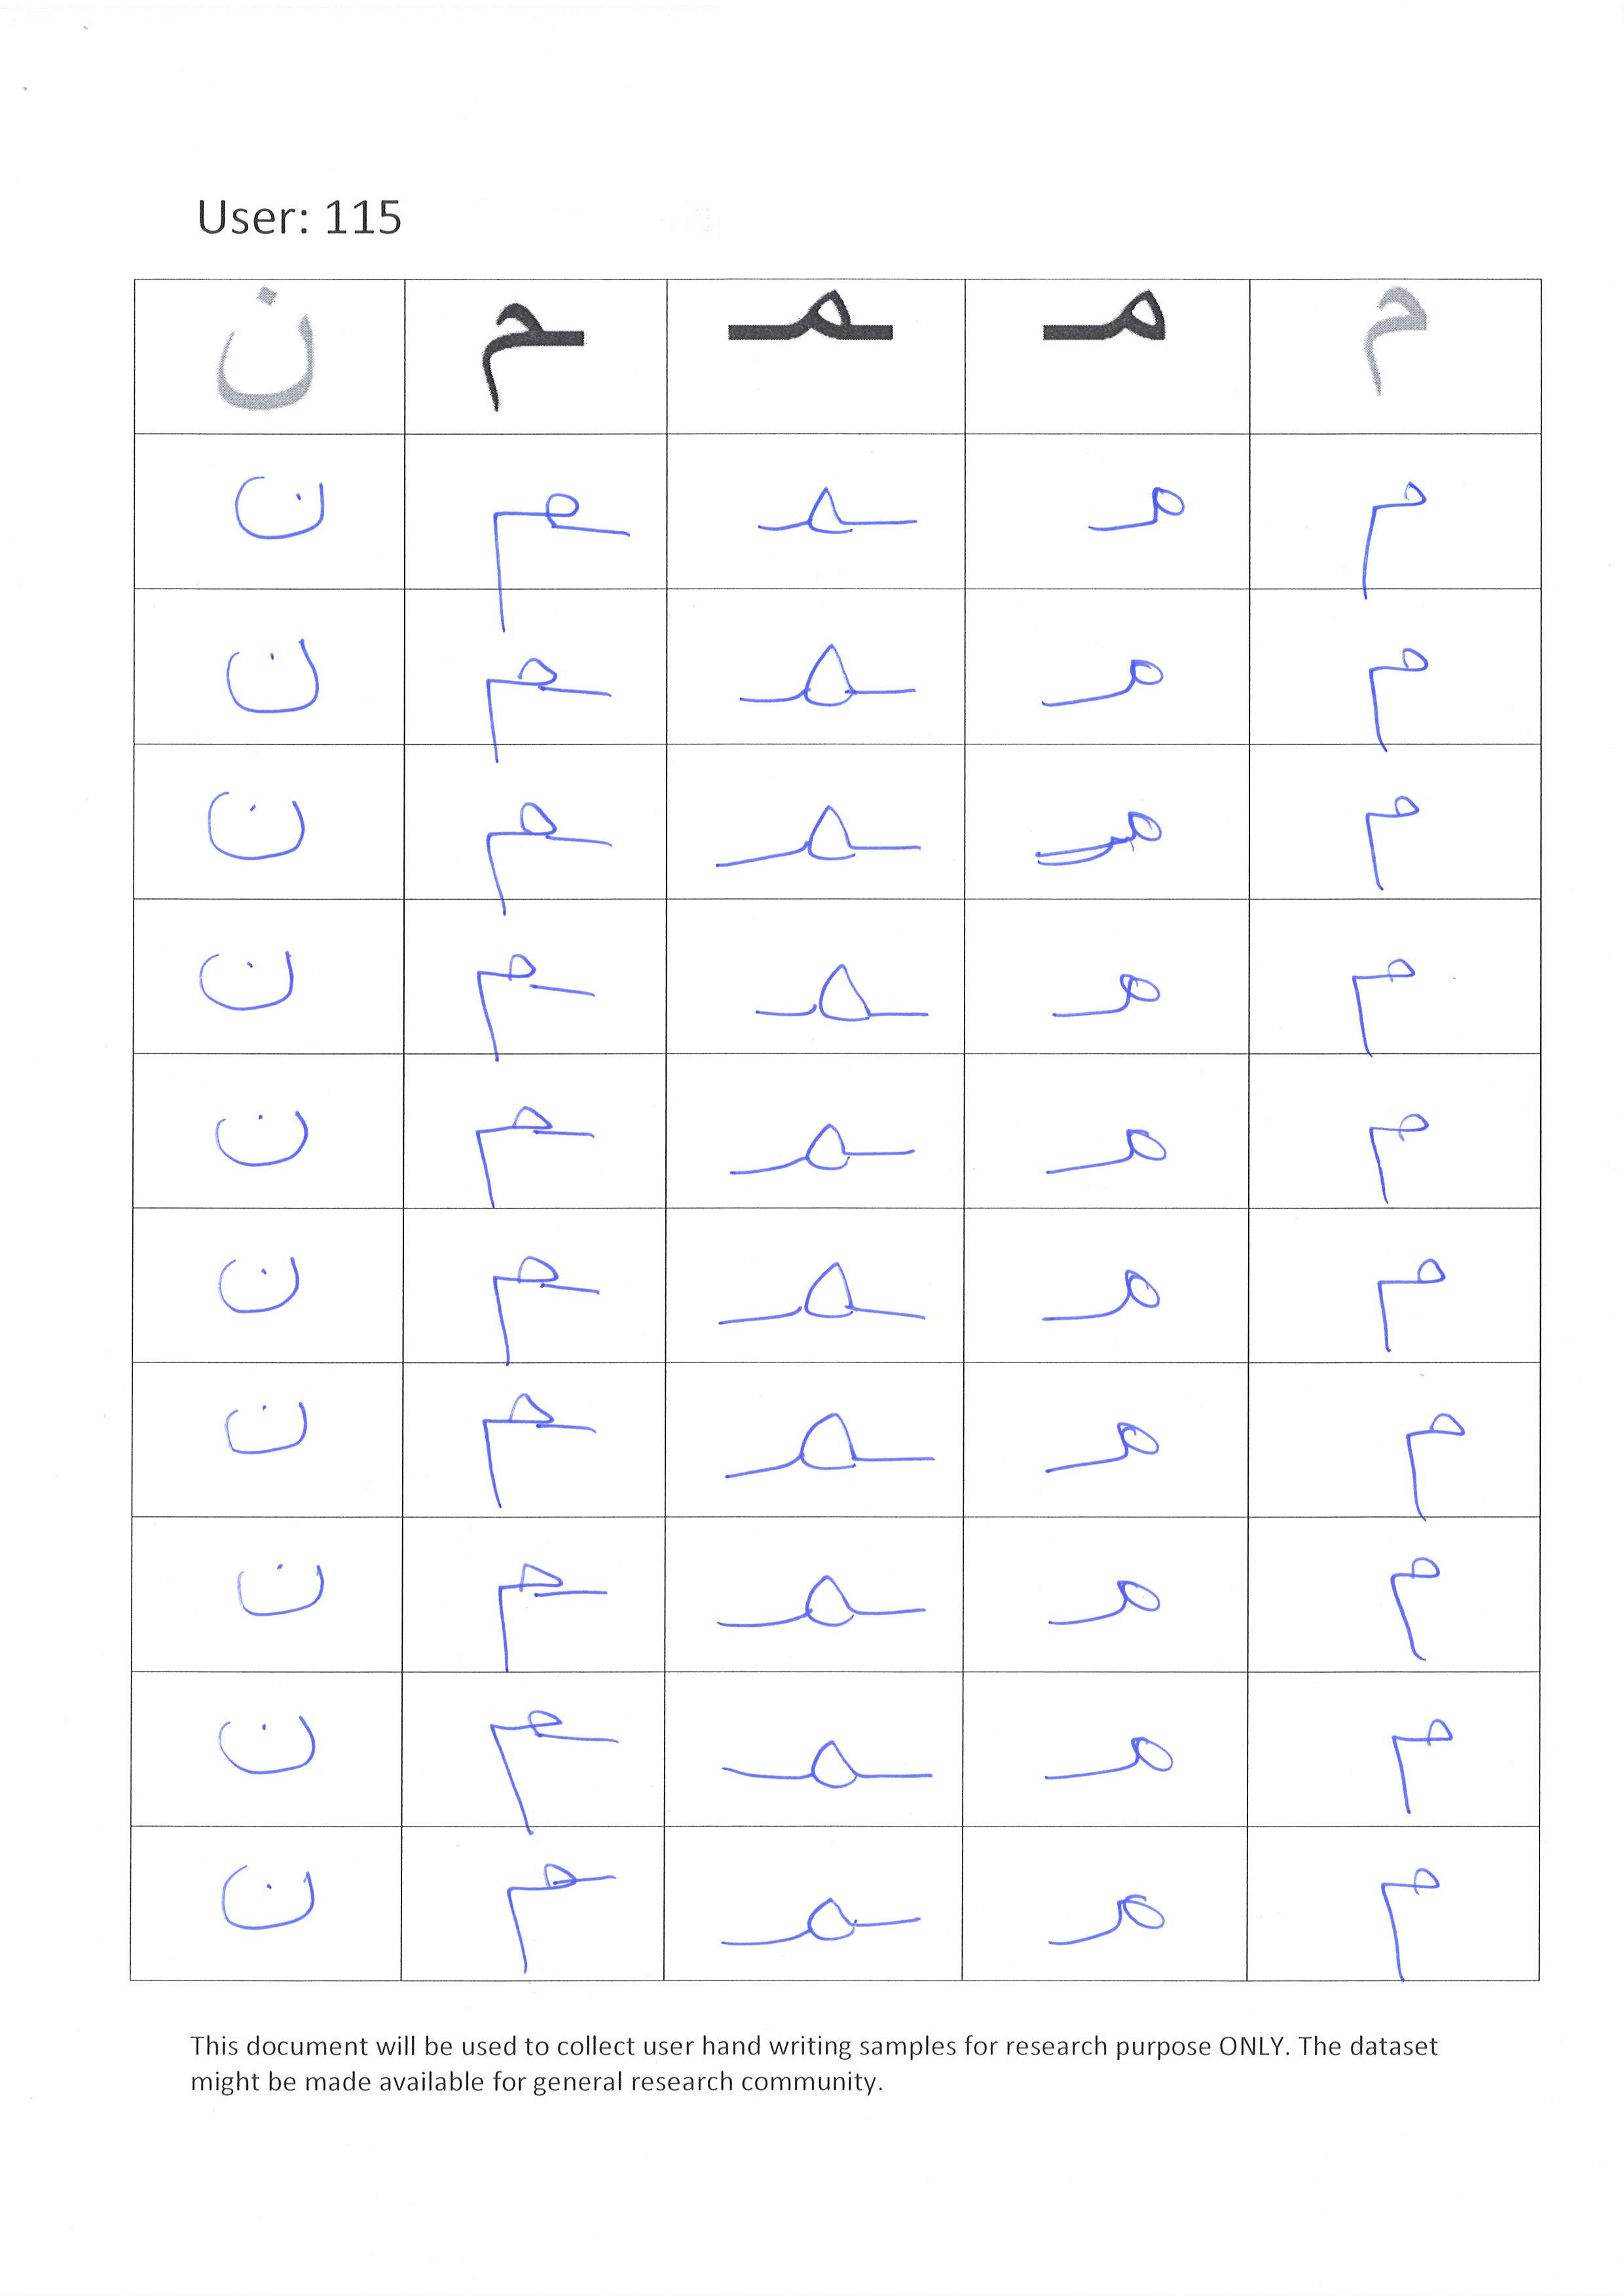 User: 115
م مـ ـمـ ـم ن
م مـ ـمـ ـم ن
م مـ ـمـ ـم ن
م مـ ـمـ ـم ن
م مـ ـمـ ـم ن
م مـ ـمـ ـم ن
م مـ ـمـ ـم ن
م مـ ـمـ ـم ن
م مـ ـمـ ـم ن
م مـ ـمـ ـم ن
م مـ ـمـ ـم ن
This document will be used to collect user hand writing samples for research purpose ONLY. The dataset
might be made available for general research community.